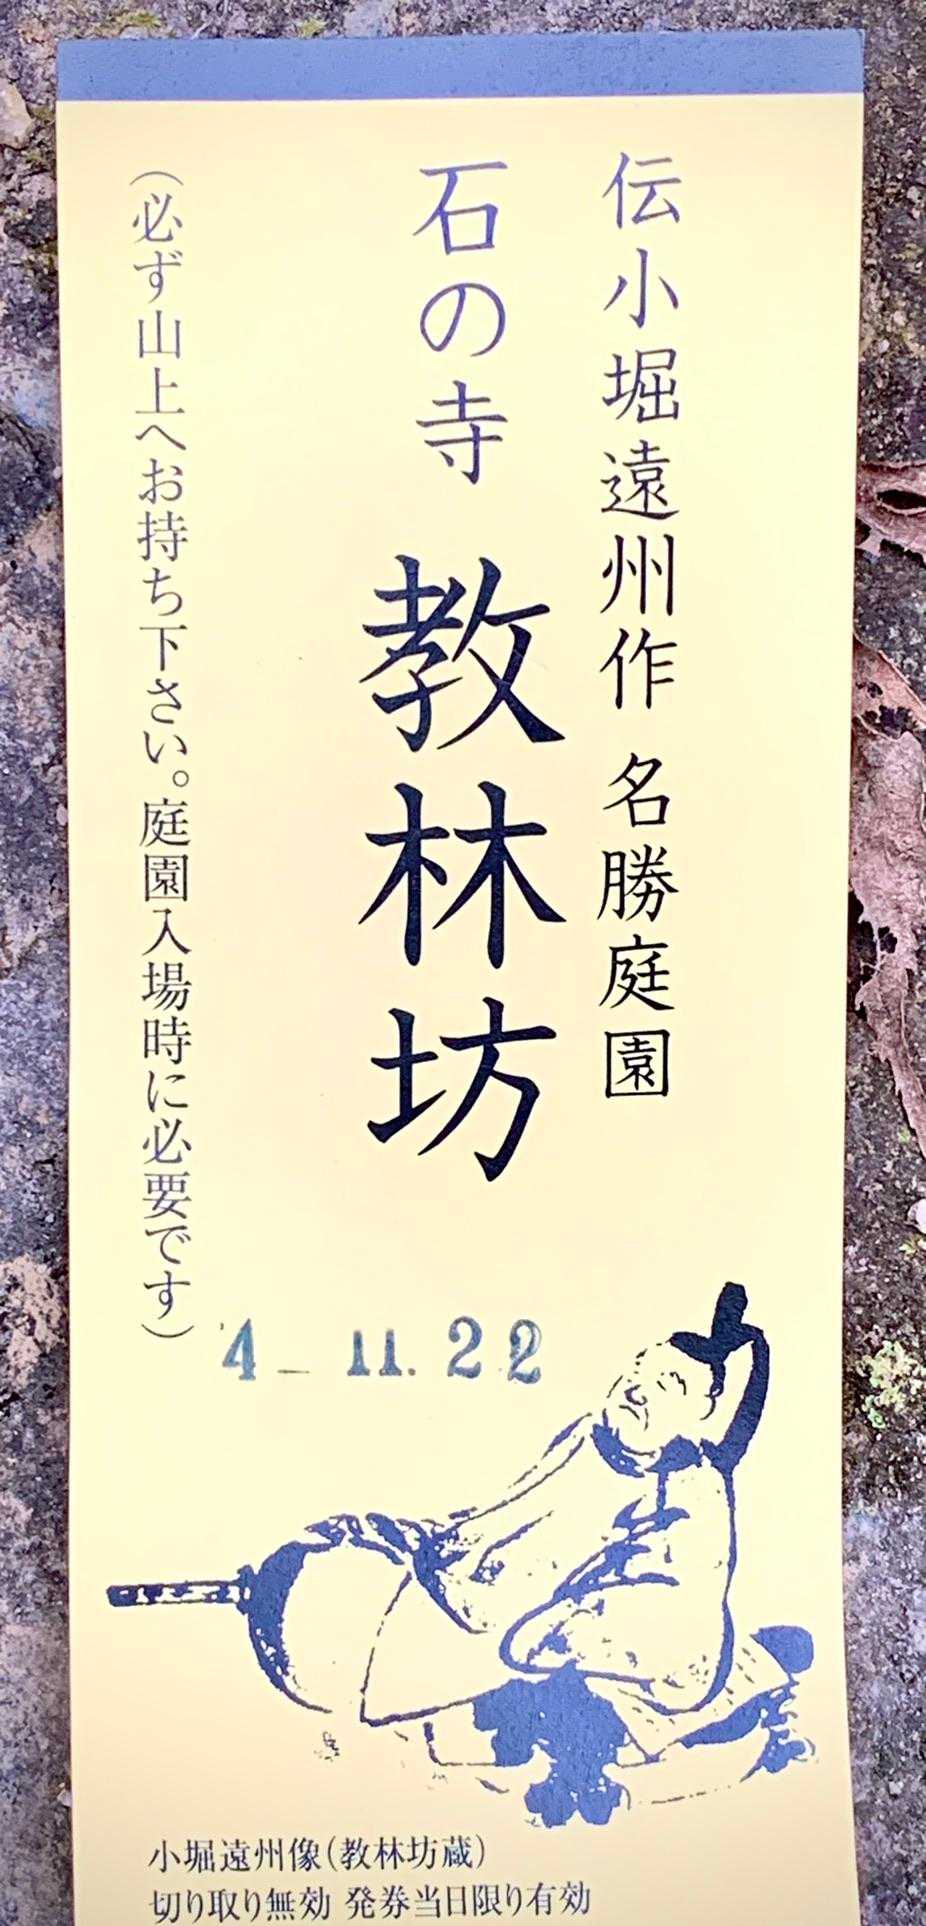 伝小堀遠州作 名勝庭園
石の寺 教林坊
（必ず山上へお持ち下さい。庭園入場時に必要です）
'4 – 11. 22
小堀遠州像（教林坊蔵）
切り取り無効 発券当日限り有効